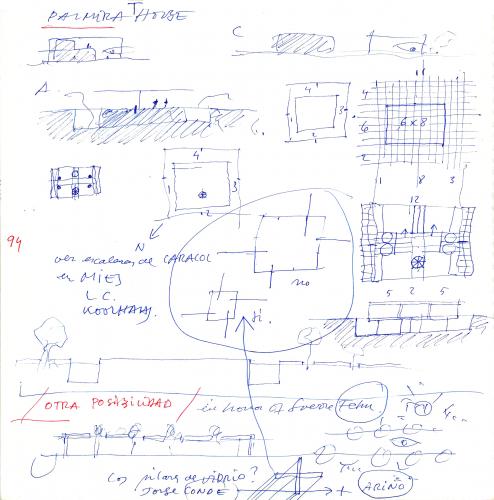 PALMIRA T HOUSE
C
A.
4
3
2
4
6
2
6 x 8
1 8 3
12
4
1
3
12
N
ver escaleras de CARACOL
en MIES
L.C.
KOOLHAAS.
no
si.
5 2 5
94
OTRA POSIBILIDAD
in honor of Sverre Fehn
con pilares de VIDRIO?
JORGE CONDE
ARIÑO